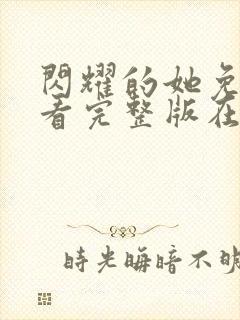 閃耀的她免
看完整版在
時光晦暗不明